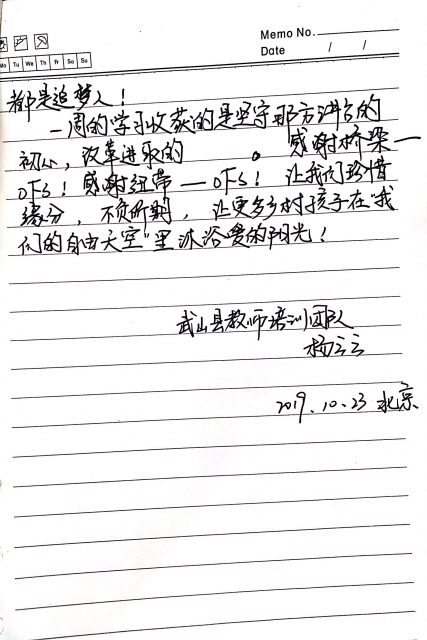 Memo No.
Date / /
Mo Tu We Th Fr Sa Su
都是追梦人!
一周的学习收获的是坚守那方讲台的
初心,改革进取的 。感谢桥梁一
OFS!感谢纽带一OFS!让我们珍惜
缘分,不负所期,让更多乡村孩子在"我
们的自由天空"里沐浴爱的阳光!
武山县教师培训团队
杨云云
2019.10.23 北京